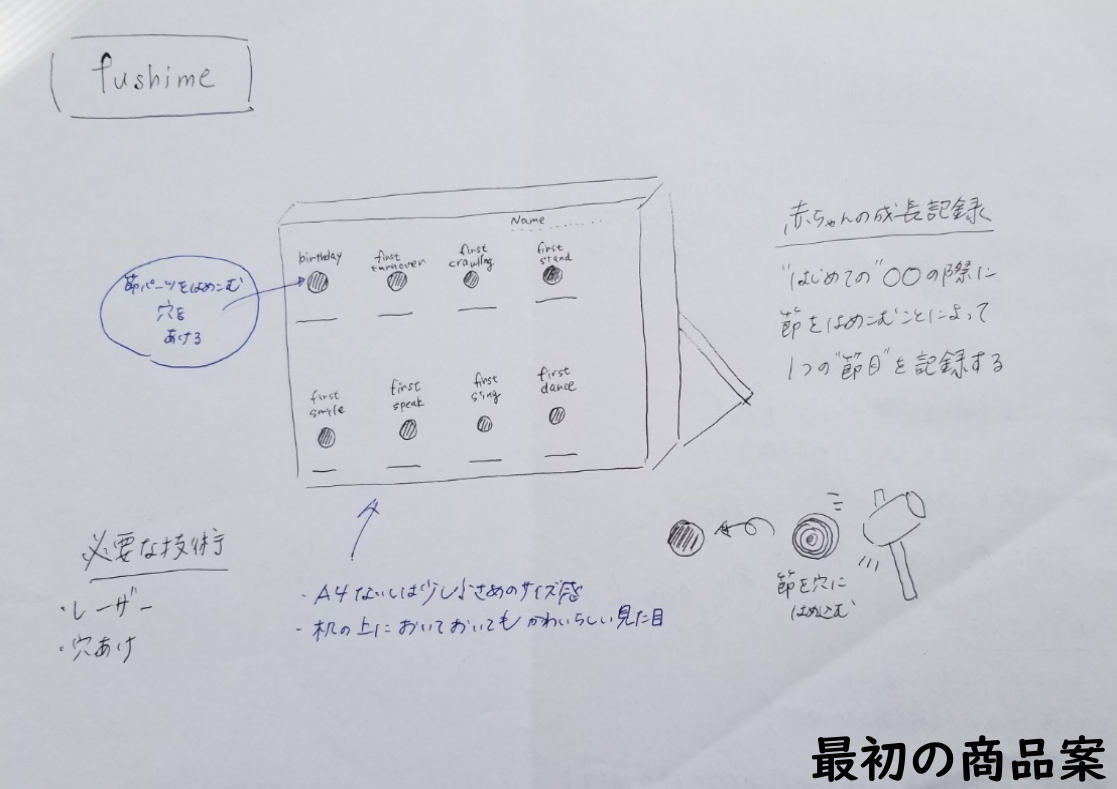 fushime
Name
birthday
first
turnover
first
crawling
first
stand
first
smile
first
speak
first
sing
first
dance
節パーツをはめこむ
穴を
あける
赤ちゃんの成長記録
"はじめての"○○の際に
節をはめこむことによって
1つの"節目"を記録する
必要な技術
・レーザー
・穴あけ
・A4ないしは少し小さめのサイズ感
・机の上においておいてもかわいらしい見た目
節を穴に
はめこむ
最初の商品案